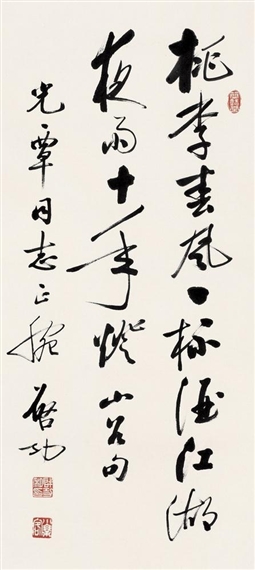 桃李春风一杯酒江湖
夜雨十年灯山谷句
光覃同志正腕启功